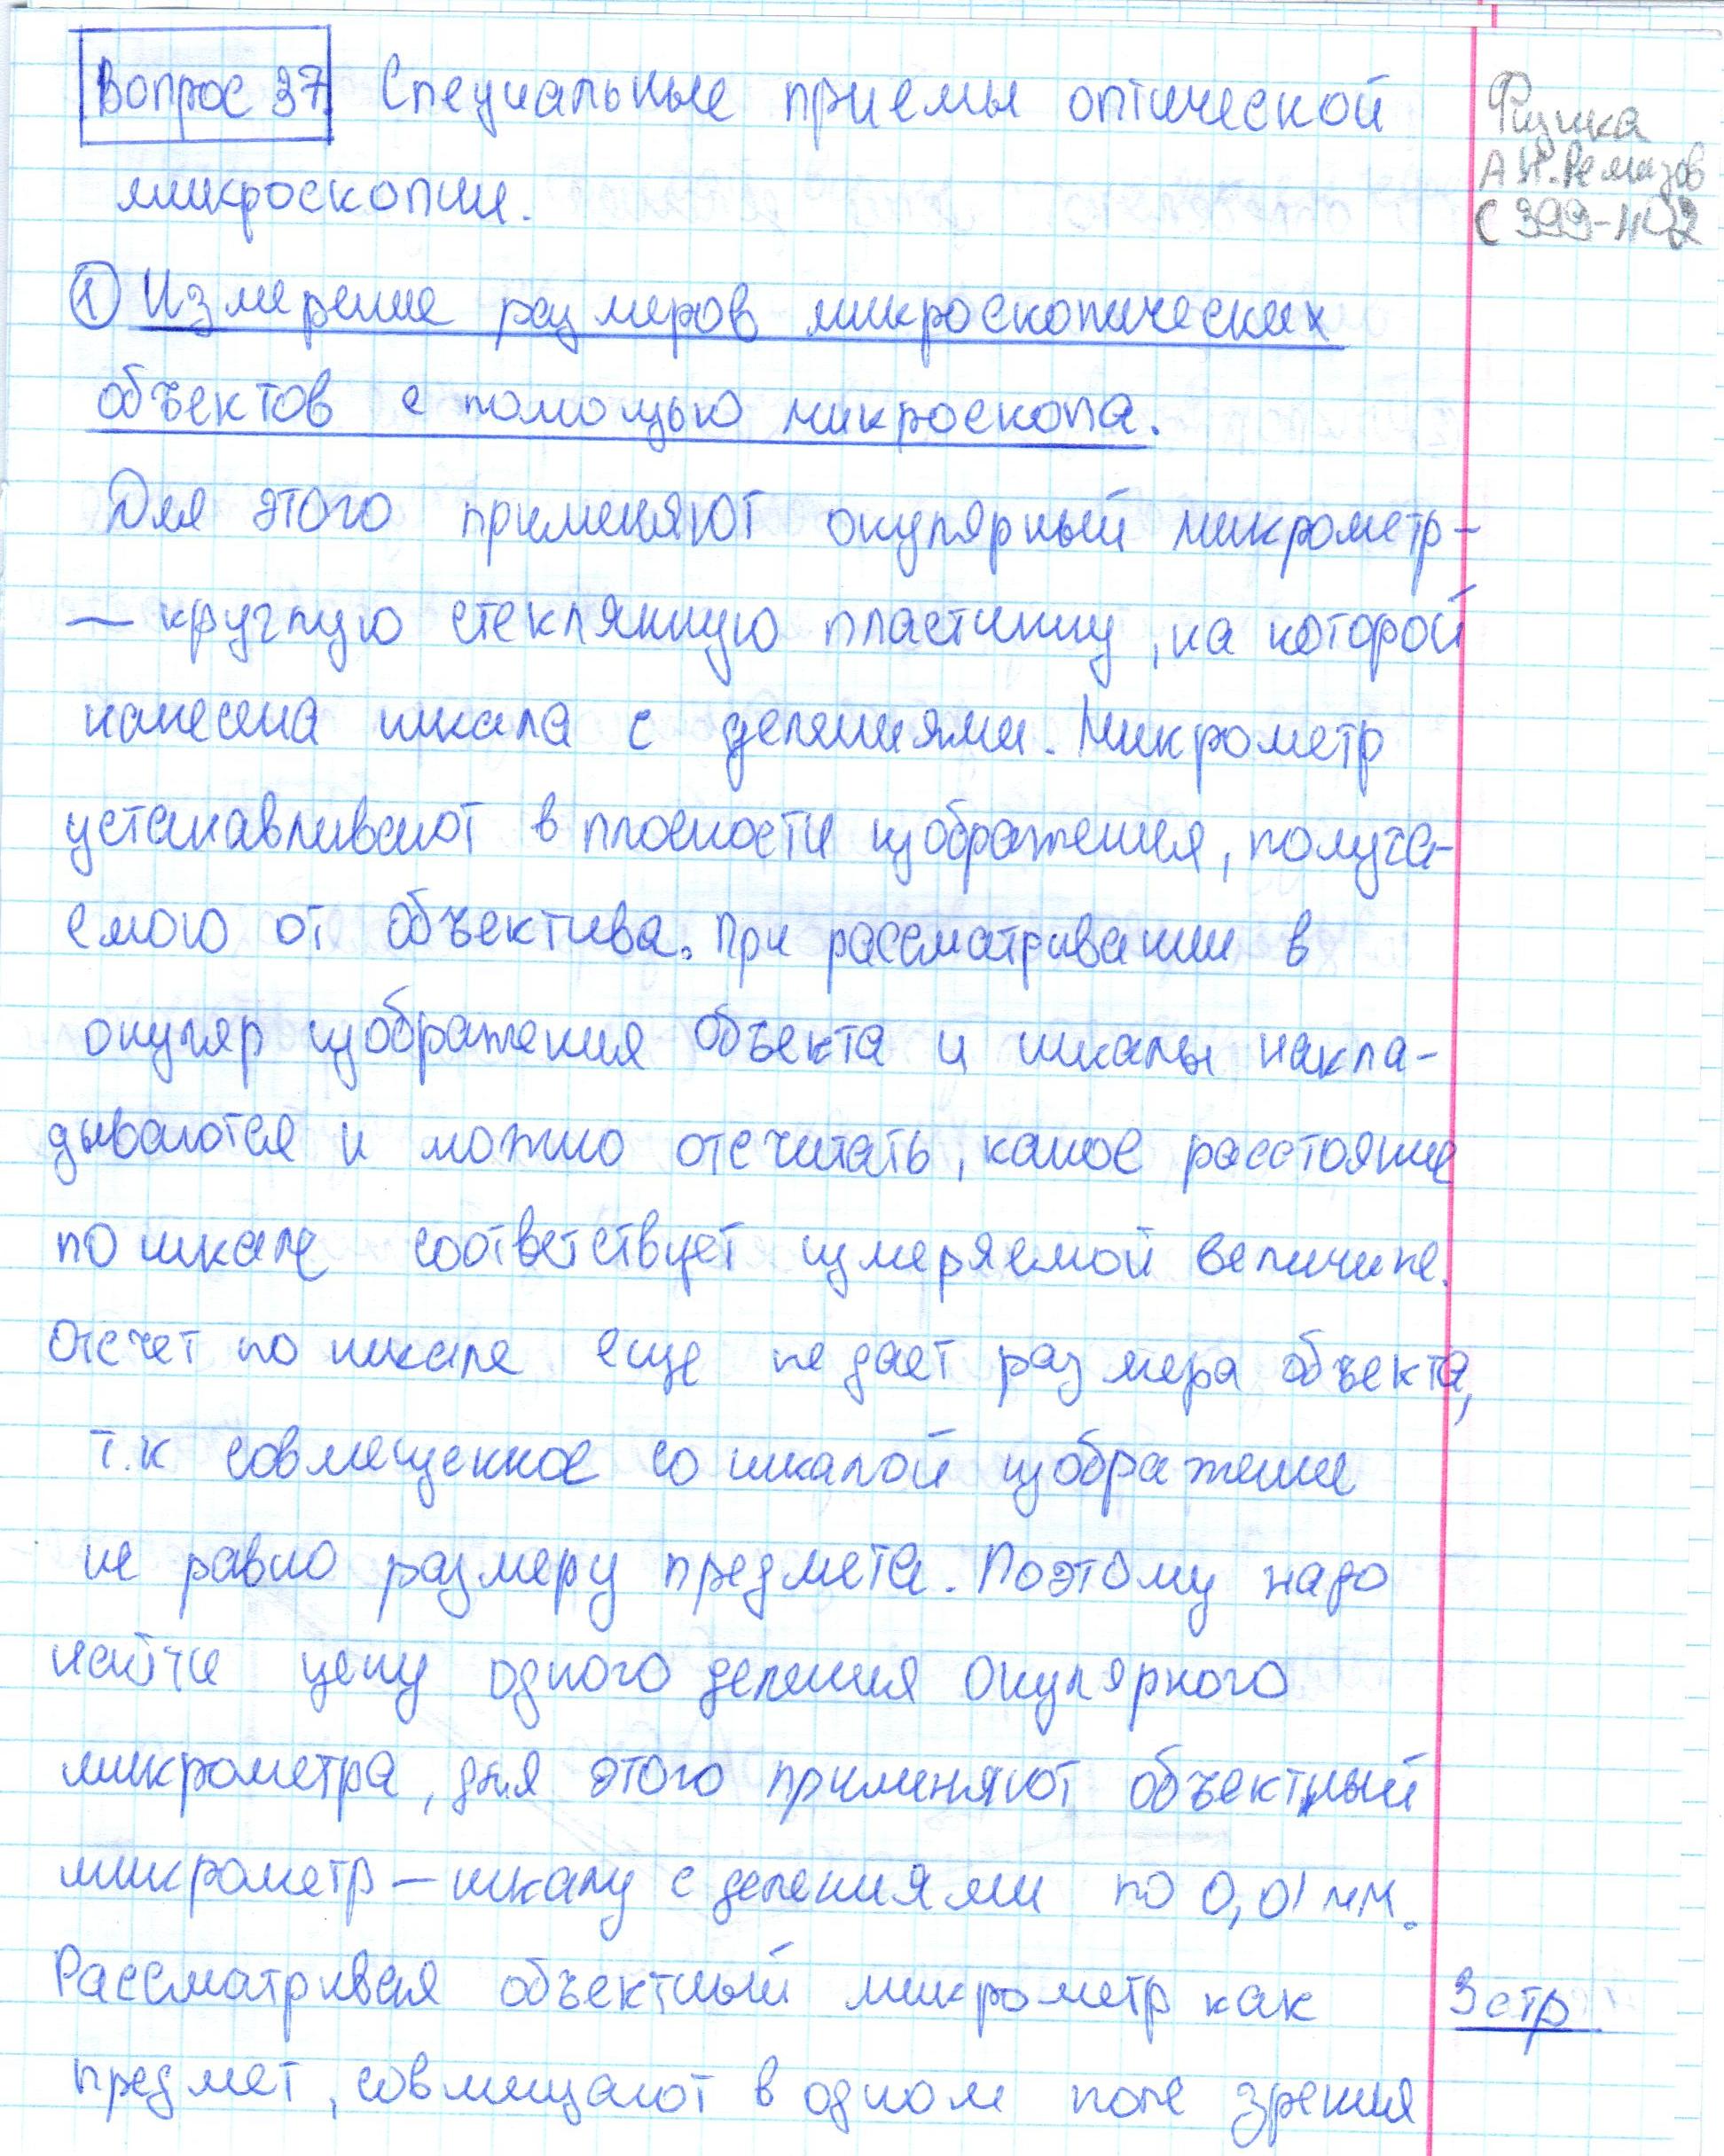 Вопрос 37. Специальные приемы оптической
микроскопии.
Физика
А.Н. Ремизов
С 399-402
① Измерение размеров микроскопических
объектов с помощью микроскопа.
Для этого применяют окулярный микрометр-
— круглую стеклянную пластинку, на которой
нанесена шкала с делениями. Микрометр
устанавливают в плоскости изображения, получа-
емого от объектива. При рассматривании в
окуляр изображения объекта и шкалы накла-
дываются и можно отсчитать, какое расстояние
по шкале соответствует измеряемой величине.
Отсчет по шкале еще не дает размера объекта,
т.к совмещенное со шкалой изображение
не равно размеру предмета. Поэтому надо
найти цену одного деления окулярного
микрометра, для этого применяют объектный
микрометр – шкалу с делениями по 0,01 мм.
Рассматривая объектный микрометр как
3 стр
предмет, совмещают в одном поле зрения